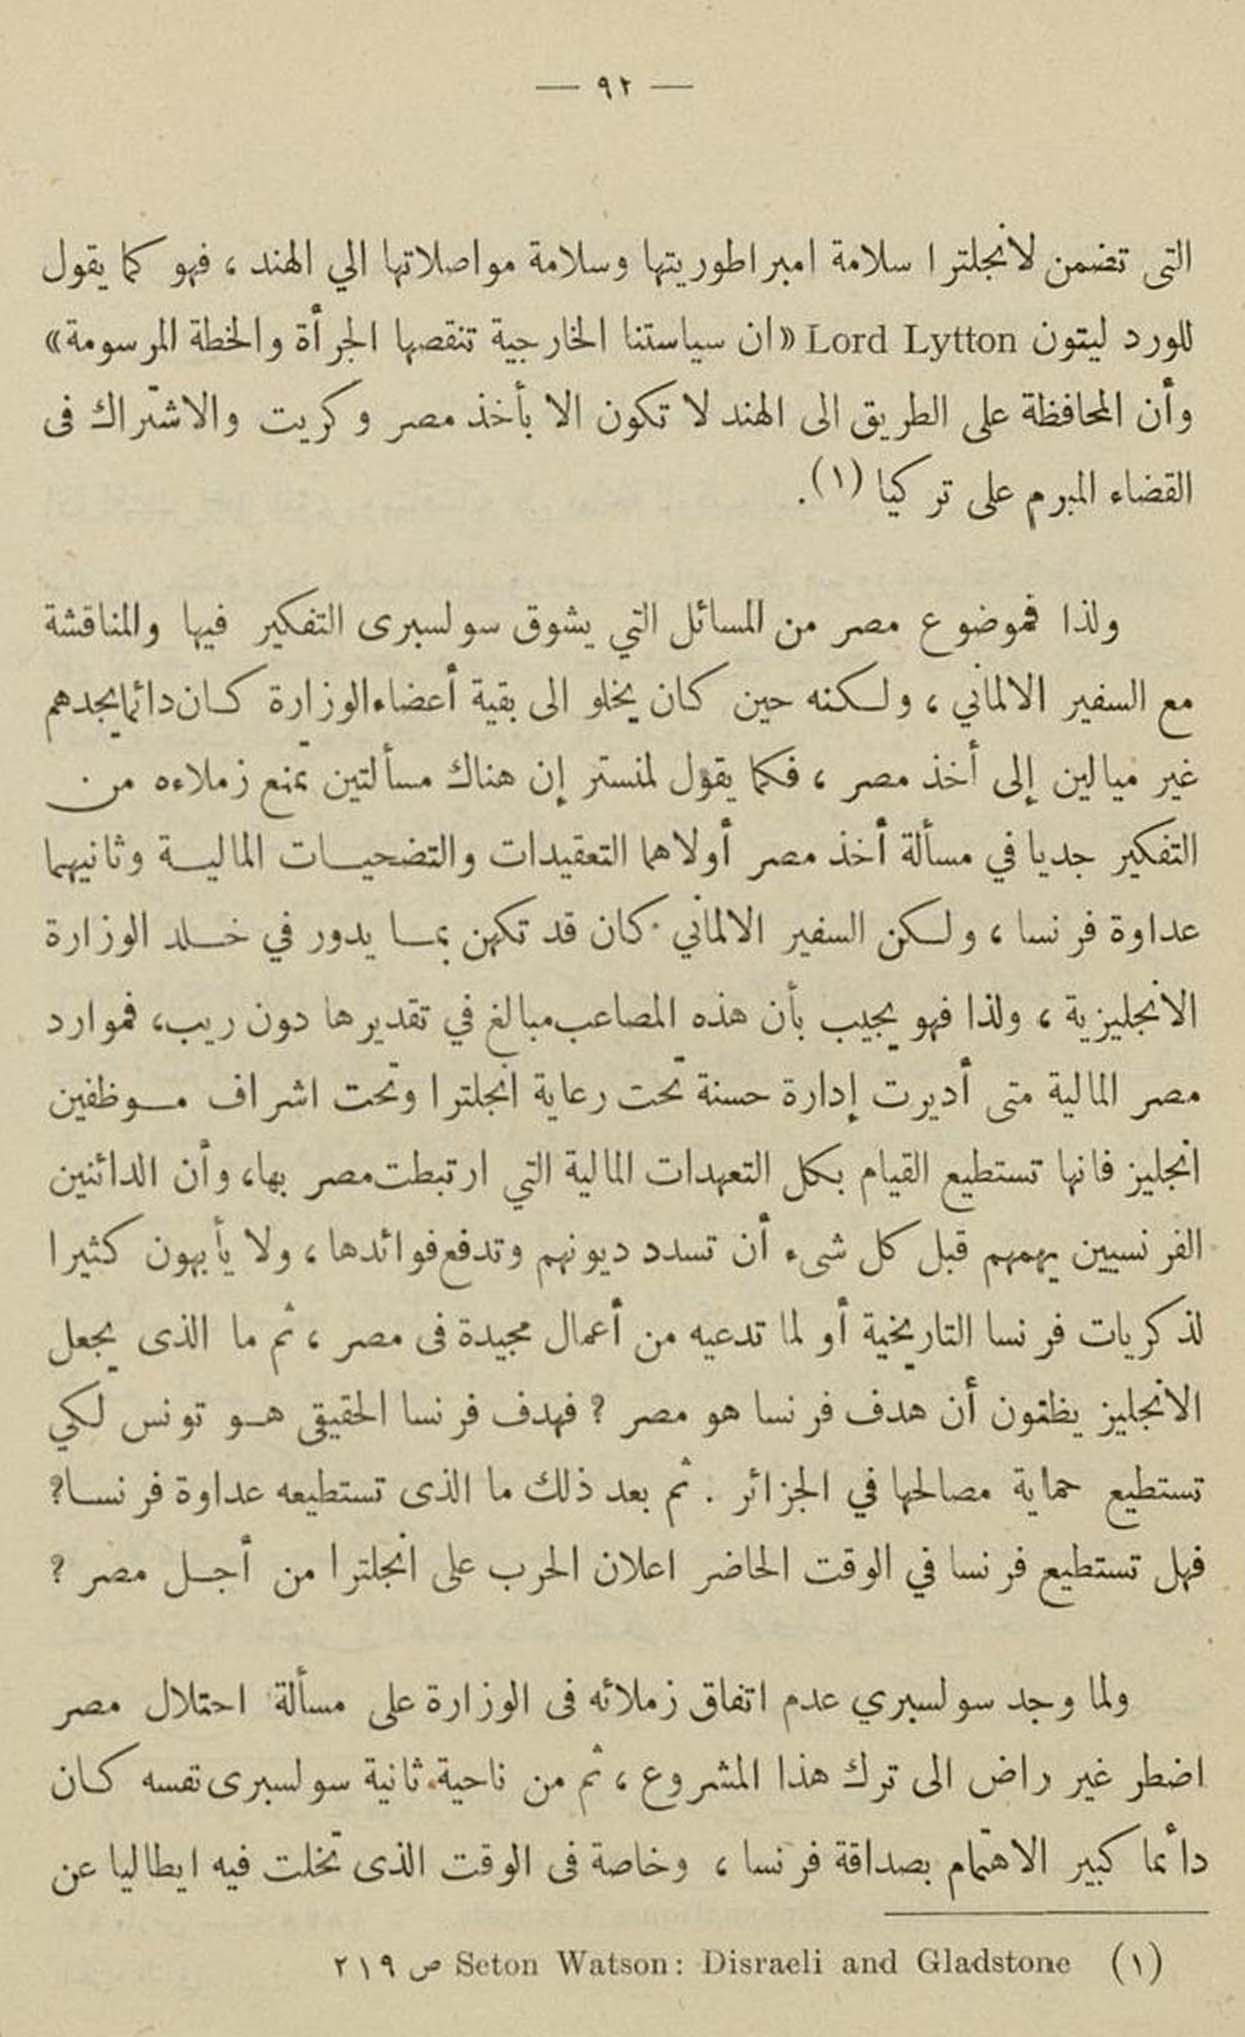 — ٩٢ —
التى تضمن لانجلترا سلامة امبراطوريتها وسلامة مواصلاتها الي الهند ، فهو كما يقول
للورد ليتون Lord Lytton «ان سياستنا الخارجية تنقصها الجرأة والخطة المرسومة»
وأن المحافظة على الطريق الى الهند لا تكون الا بأخذ مصر وكريت والاشتراك فى
القضاء المبرم على تركيا (١).
ولذا فموضوع مصر من المسائل التي يشوق سولسبرى التفكير فيها والمناقشة
مع السفير الالماني ، ولكنه حين كان يخلو الى بقية أعضاء الوزارة كان دائما يجدهم
غير ميالين إلى أخذ مصر ، فكما يقول لمنستر إن هناك مسألتين تمنع زملاءه من
التفكير جديا في مسألة أخذ مصر أولاهما التعقيدات والتضحيات المالية وثانيهما
عداوة فرنسا ، ولكن السفير الالماني كان قد تكهن بما يدور في خلد الوزارة
الانجليزية ، ولذا فهو يجيب بأن هذه المصاعب مبالغ في تقديرها دون ريب، فموارد
مصر المالية متى أديرت إدارة حسنة تحت رعاية انجلترا وتحت اشراف موظفين
انجليز فانها تستطيع القيام بكل التعهدات المالية التي ارتبطت مصر بها، وأن الدائنين
الفرنسيين يهمهم قبل كل شىء أن تسدد ديونهم وتدفع فوائدها ، ولا يأبهون كثيرا
لذكريات فرنسا التاريخية أو لما تدعيه من أعمال مجيدة فى مصر ، ثم ما الذى يجعل
الانجليز يظنون أن هدف فرنسا هو مصر ؟ فهدف فرنسا الحقيقى هو تونس لكي
تستطيع حماية مصالحها في الجزائر . ثم بعد ذلك ما الذى تستطيعه عداوة فرنسا؟
فهل تستطيع فرنسا في الوقت الحاضر اعلان الحرب على انجلترا من أجل مصر ؟
ولما وجد سولسبري عدم اتفاق زملائه فى الوزارة على مسألة احتلال مصر
اضطر غير راض الى ترك هذا المشروع ، ثم من ناحية ثانية سولسبرى نفسه كان
دائما كبير الاهتمام بصداقة فرنسا ، وخاصة فى الوقت الذى تخلت فيه ايطاليا عن
(١) Seton Watson: Disraeli and Gladstone ص ٢١٩